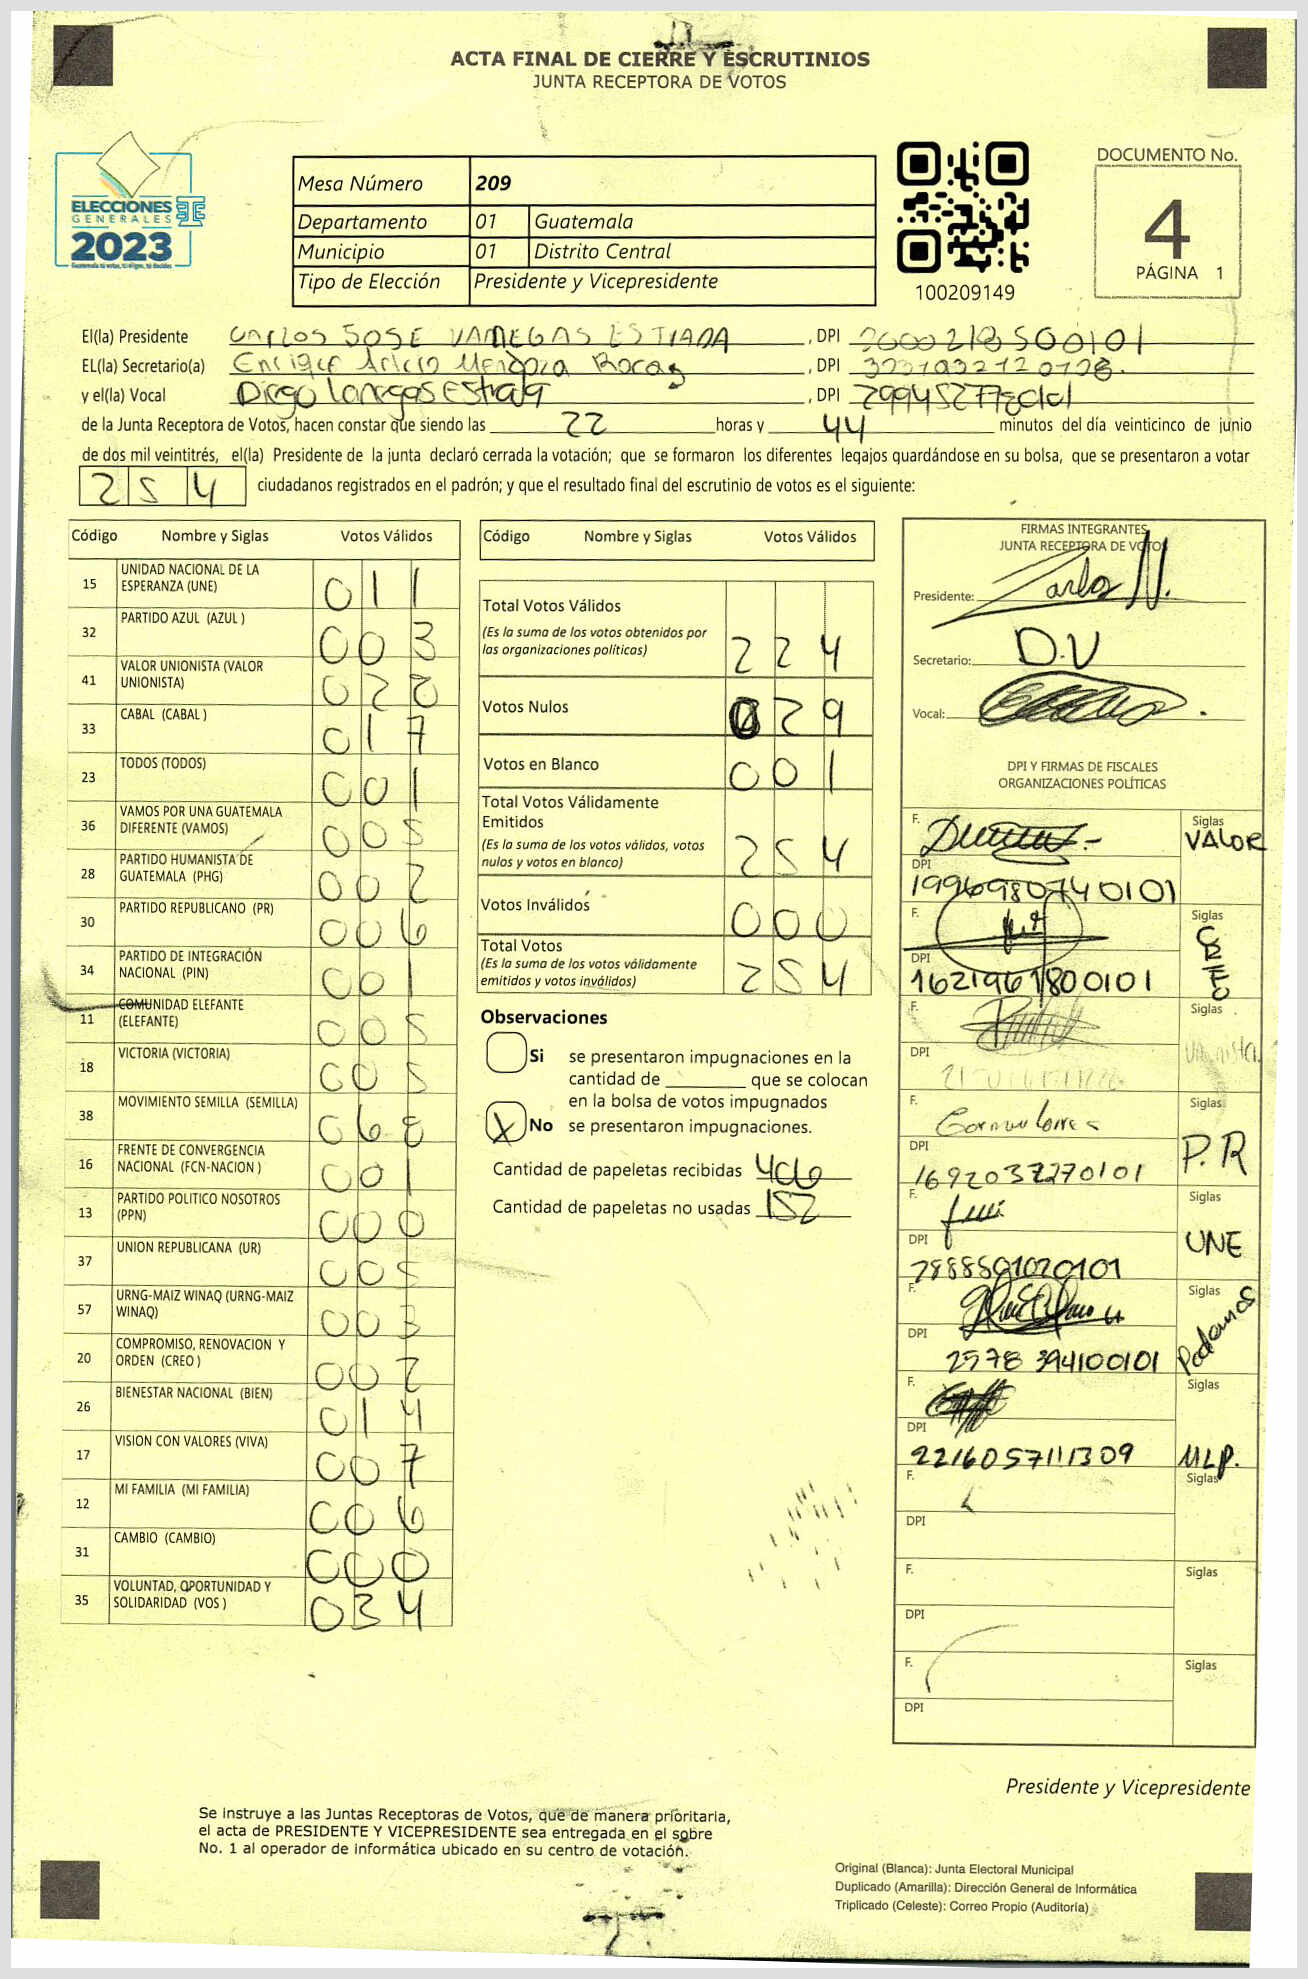 ACTA FINAL DE CIERRE Y ESCRUTINIOS
JUNTA RECEPTORA DE VOTOS
ELECCIONES
GENERALES
2023
Mesa Número 209
Departamento 01 Guatemala
Municipio 01 Distrito Central
Tipo de Elección Presidente y Vicepresidente
100209149
DOCUMENTO No.
4
PÁGINA 1
El(la) Presidente CARLOS JOSE VANEGAS ESTRADA , DPI
EL(la) Secretario(a) Enrique Mendoza Rocas , DPI
y el(la) Vocal Diego Vanegas Estrada , DPI
de la Junta Receptora de Votos, hacen constar que siendo las 22 horas y 44 minutos del día veinticinco de junio
de dos mil veintitrés, el(la) Presidente de la junta declaró cerrada la votación; que se formaron los diferentes legajos guardándose en su bolsa, que se presentaron a votar
254 ciudadanos registrados en el padrón; y que el resultado final del escrutinio de votos es el siguiente:
Código Nombre y Siglas Votos Válidos
15 UNIDAD NACIONAL DE LA ESPERANZA (UNE) 011
32 PARTIDO AZUL (AZUL ) 003
41 VALOR UNIONISTA (VALOR UNIONISTA) 028
33 CABAL (CABAL ) 017
23 TODOS (TODOS) 001
36 VAMOS POR UNA GUATEMALA DIFERENTE (VAMOS) 005
28 PARTIDO HUMANISTA DE GUATEMALA (PHG) 002
30 PARTIDO REPUBLICANO (PR) 006
34 PARTIDO DE INTEGRACIÓN NACIONAL (PIN) 001
11 COMUNIDAD ELEFANTE (ELEFANTE) 005
18 VICTORIA (VICTORIA) 005
38 MOVIMIENTO SEMILLA (SEMILLA) 068
16 FRENTE DE CONVERGENCIA NACIONAL (FCN-NACION ) 001
13 PARTIDO POLITICO NOSOTROS (PPN) 000
37 UNION REPUBLICANA (UR) 005
57 URNG-MAIZ WINAQ (URNG-MAIZ WINAQ) 003
20 COMPROMISO, RENOVACION Y ORDEN (CREO ) 002
26 BIENESTAR NACIONAL (BIEN) 014
17 VISION CON VALORES (VIVA) 007
12 MI FAMILIA (MI FAMILIA) 006
31 CAMBIO (CAMBIO) 000
35 VOLUNTAD, OPORTUNIDAD Y SOLIDARIDAD (VOS ) 034
Código Nombre y Siglas Votos Válidos
Total Votos Válidos
(Es la suma de los votos obtenidos por
las organizaciones políticas) 224
Votos Nulos 029
Votos en Blanco 001
Total Votos Válidamente
Emitidos
(Es la suma de los votos válidos, votos
nulos y votos en blanco) 254
Votos Inválidos 000
Total Votos
(Es la suma de los votos válidamente
emitidos y votos inválidos) 254
Observaciones
Si se presentaron impugnaciones en la
cantidad de ________ que se colocan
en la bolsa de votos impugnados
X No se presentaron impugnaciones.
Cantidad de papeletas recibidas 406
Cantidad de papeletas no usadas 152
FIRMAS INTEGRANTES
JUNTA RECEPTORA DE VOTOS
Presidente: Carlos N.
Secretario: D.V
Vocal:
DPI Y FIRMAS DE FISCALES
ORGANIZACIONES POLÍTICAS
F. Siglas VALOR
DPI 1996980740101
F. Siglas CREO
DPI 1621961800101
F. Siglas
DPI
F. Siglas P.R
DPI 1692037270101
F. Siglas UNE
DPI 2888591020101
F. Siglas Podemos
DPI 2578 394100101
F. Siglas MLP.
DPI 2216057111309
F. Siglas
DPI
F. Siglas
DPI
F. Siglas
DPI
Presidente y Vicepresidente
Se instruye a las Juntas Receptoras de Votos, que de manera prioritaria,
el acta de PRESIDENTE Y VICEPRESIDENTE sea entregada en el sobre
No. 1 al operador de informática ubicado en su centro de votación.
Original (Blanca): Junta Electoral Municipal
Duplicado (Amarilla): Dirección General de Informática
Triplicado (Celeste): Correo Propio (Auditoría)